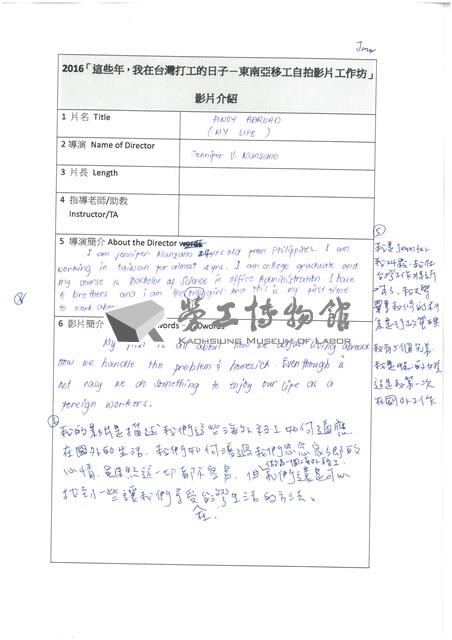 Jenny
2016「這些年，我在台灣打工的日子－東南亞移工自拍影片工作坊」
影片介紹
1 片名 Title
PINOY ABROAD
(MY LIFE)
2 導演 Name of Director
Jennifer V. Manzano
3 片長 Length
4 指導老師/助教
Instructor/TA
5 導演簡介 About the Director words
I am Jennifer Manzano 24 yrs old from Philippines. I am
working in taiwan for almost 2 yrs. I am college graduate and
my course is bachelor of science in office Administration. I have
5 brothers and i am the only girl and this is my first time
to work
6 影片簡介 words
My film is all about how we adjust living abroad
how we handle the problem & homesick. Eventhough is
not easy we do something to enjoy our life as a
foreign workers.
我的影片是描述我們這些海外移工如何適應
在國外的生活、我們如何渡過我們思念家鄉的
心情。雖然這一切都不容易，但我們還是可以
找到一些讓我們享受 生活的方法。
在
⑤
我是Jennifer
我有5個兄弟
這是我第一次
在國外工作
勞工博物館
KAOHSIUNG MUSEUM OF LABOR